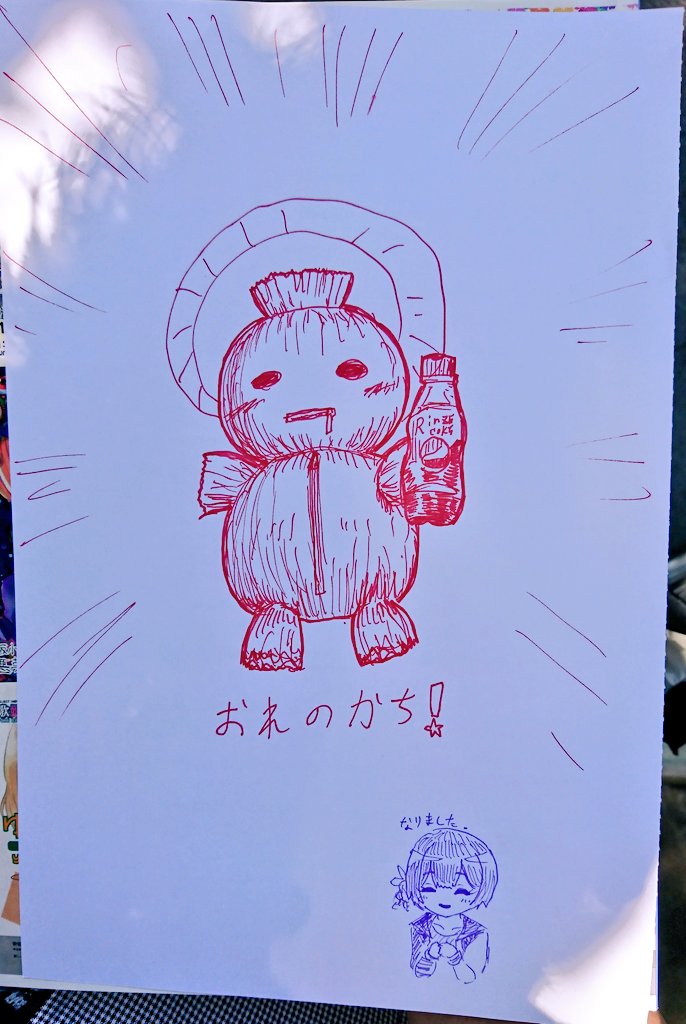 Rinze
coke
おれのかち!
なりました。